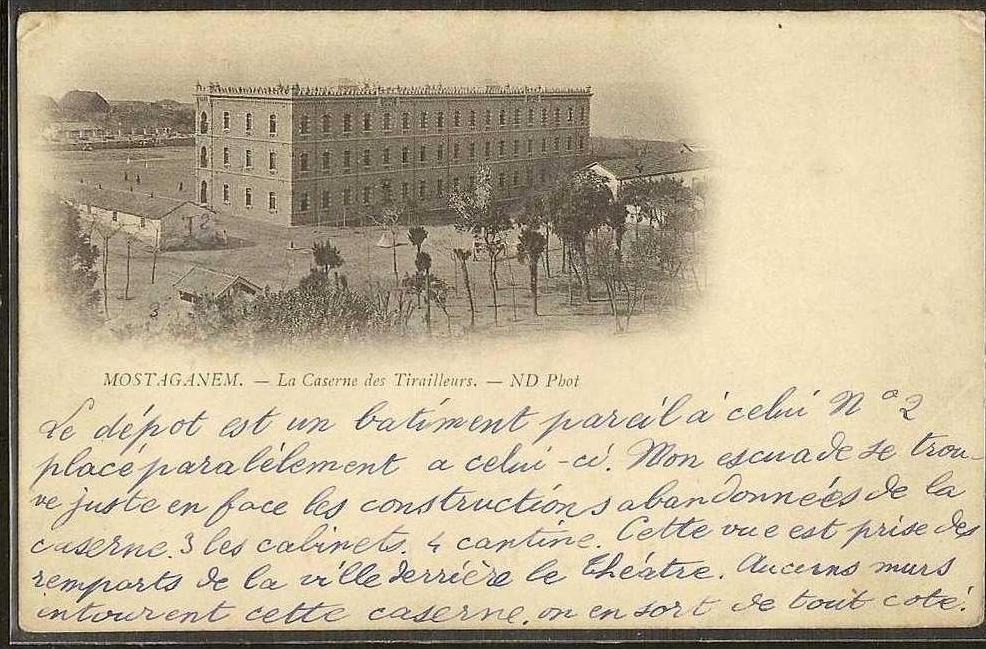 2
3
MOSTAGANEM. — La Caserne des Tirailleurs. — ND Phot
Le dépot est un batiment pareil à celui N° 2
placé paralélement a celui-ci. Mon escuade se trou-
ve juste en face les constructions abandonnées de la
caserne. 3 les cabinets. 4 cantine. Cette vue est prise des
remparts de la ville derrière le théatre. Aucuns murs
entourent cette caserne, on en sort de tout coté.